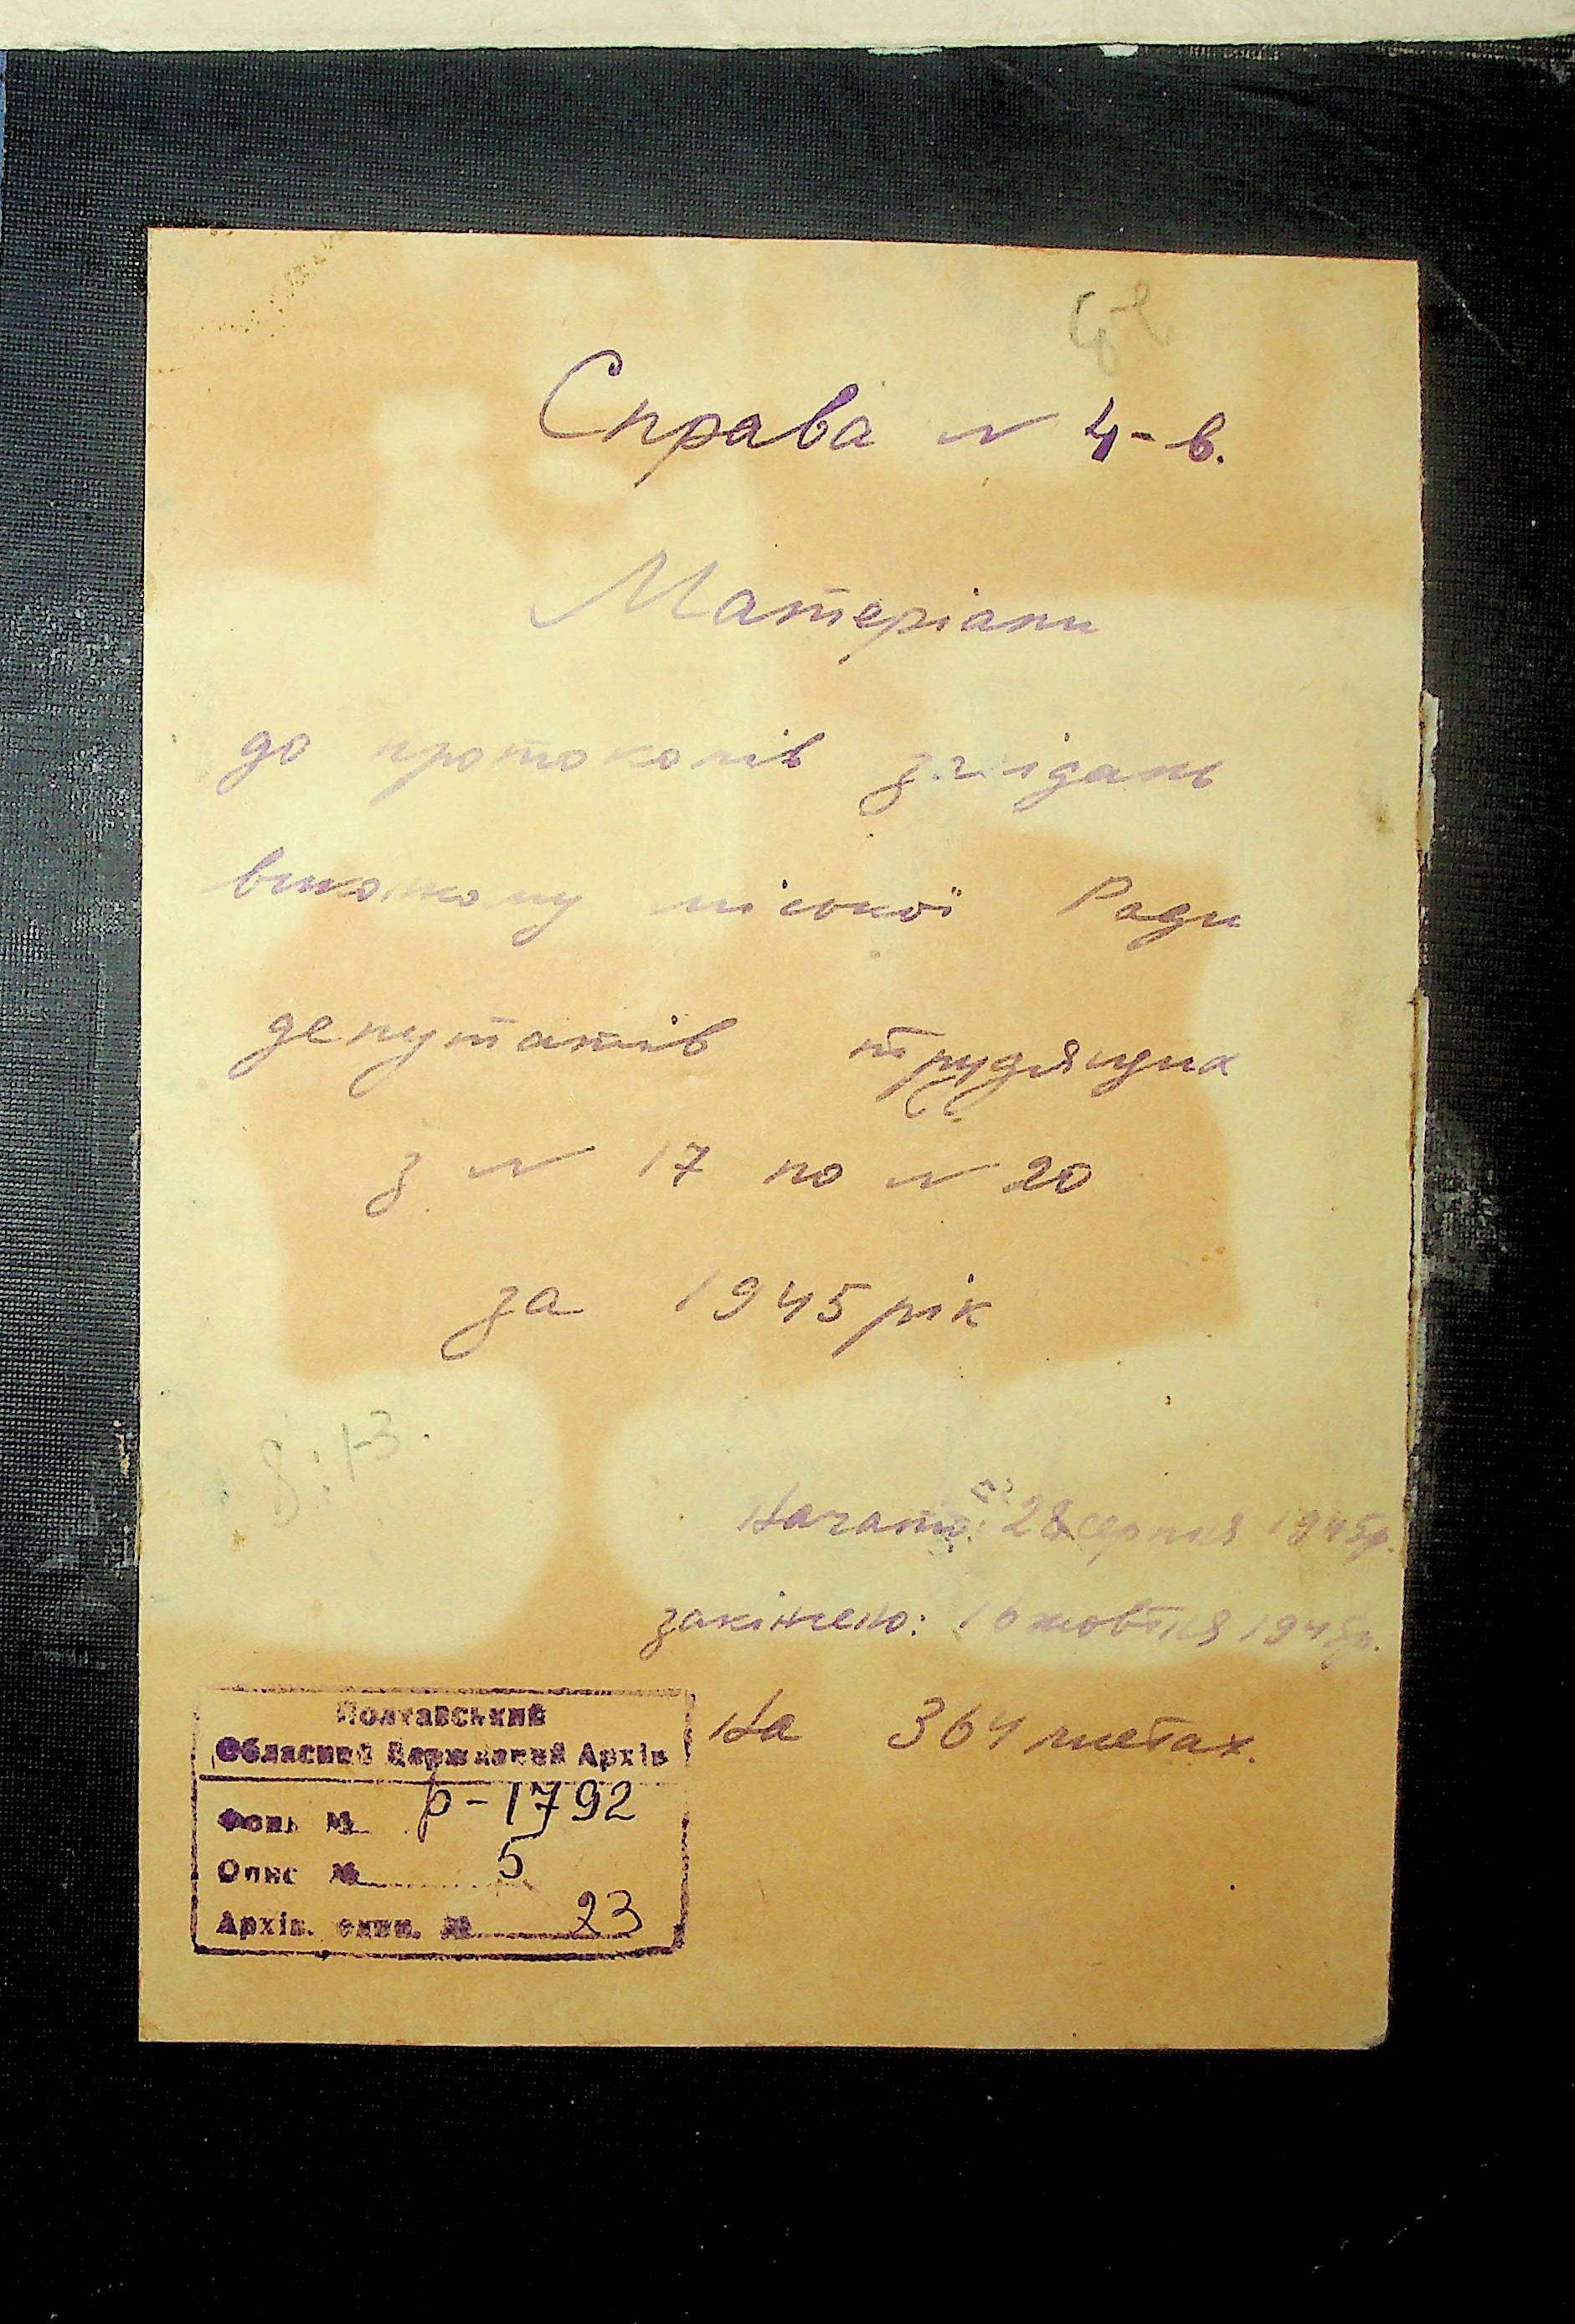 Справа № 4-в.
Матеріали
до протоколів засідань
виконкому міської Ради
депутатів трудящих
з № 17 по № 20
за 1945 рік
Начато: 28 серпня 1945р.
закінчено: 16 жовтня 1945р.
На 364 листах.
Полтавський
Обласний Державний Архів
Фонд № р-1792
Опис № 5
Архів. один. № 23